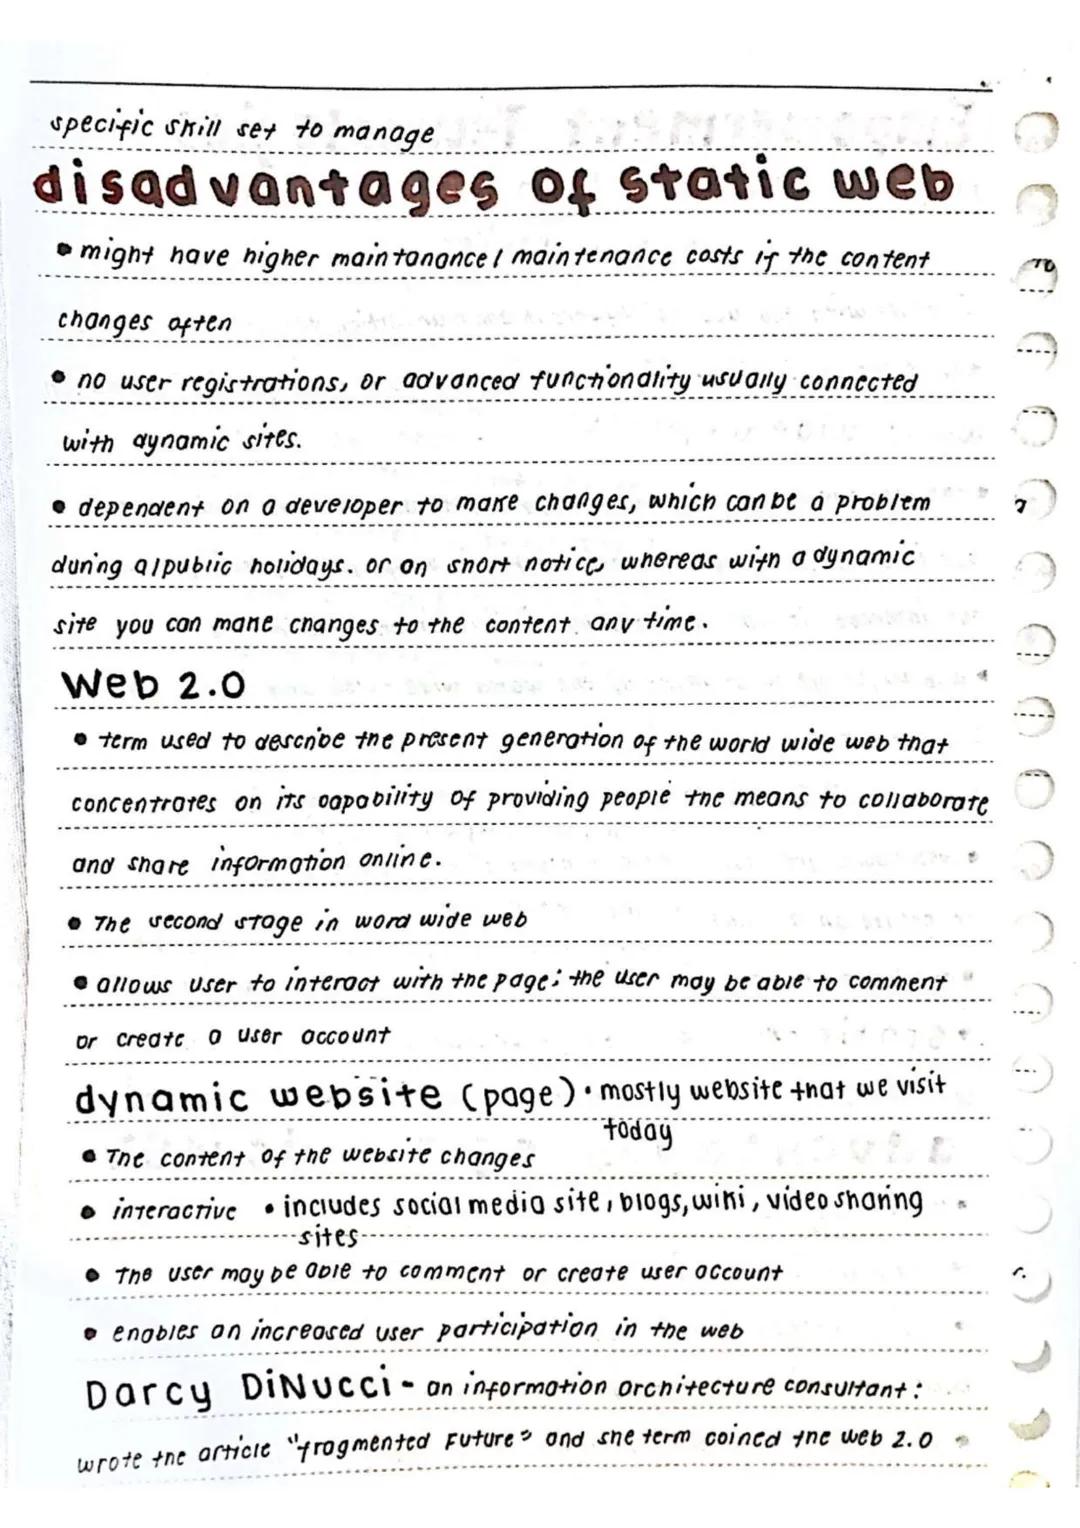 specific skill set to manage
disadvantages of static web
• might have higher maintanance / maintenance costs if the content
changes often
• no user registrations, or advanced functionality usually connected
with dynamic sites.
• dependent on a developer to make changes, which can be a problem
during a/public holidays. or on short notice, whereas with a dynamic
site you can make changes to the content any time.
Web 2.0
• term used to describe the present generation of the world wide web that
concentrates on its capability of providing people the means to collaborate
and share information online.
• The second stage in word wide web
• allows user to interact with the page; the user may be able to comment
or create a user account
dynamic website (page) • mostly website that we visit
today
• The content of the website changes
• interactive • includes social media site, blogs, wiki, video sharing
sites
• The user may be able to comment or create user account
• enables an increased user participation in the web
Darcy DiNucci - an information architecture consultant:
wrote the article "fragmented Future" and she term coined the web 2.0